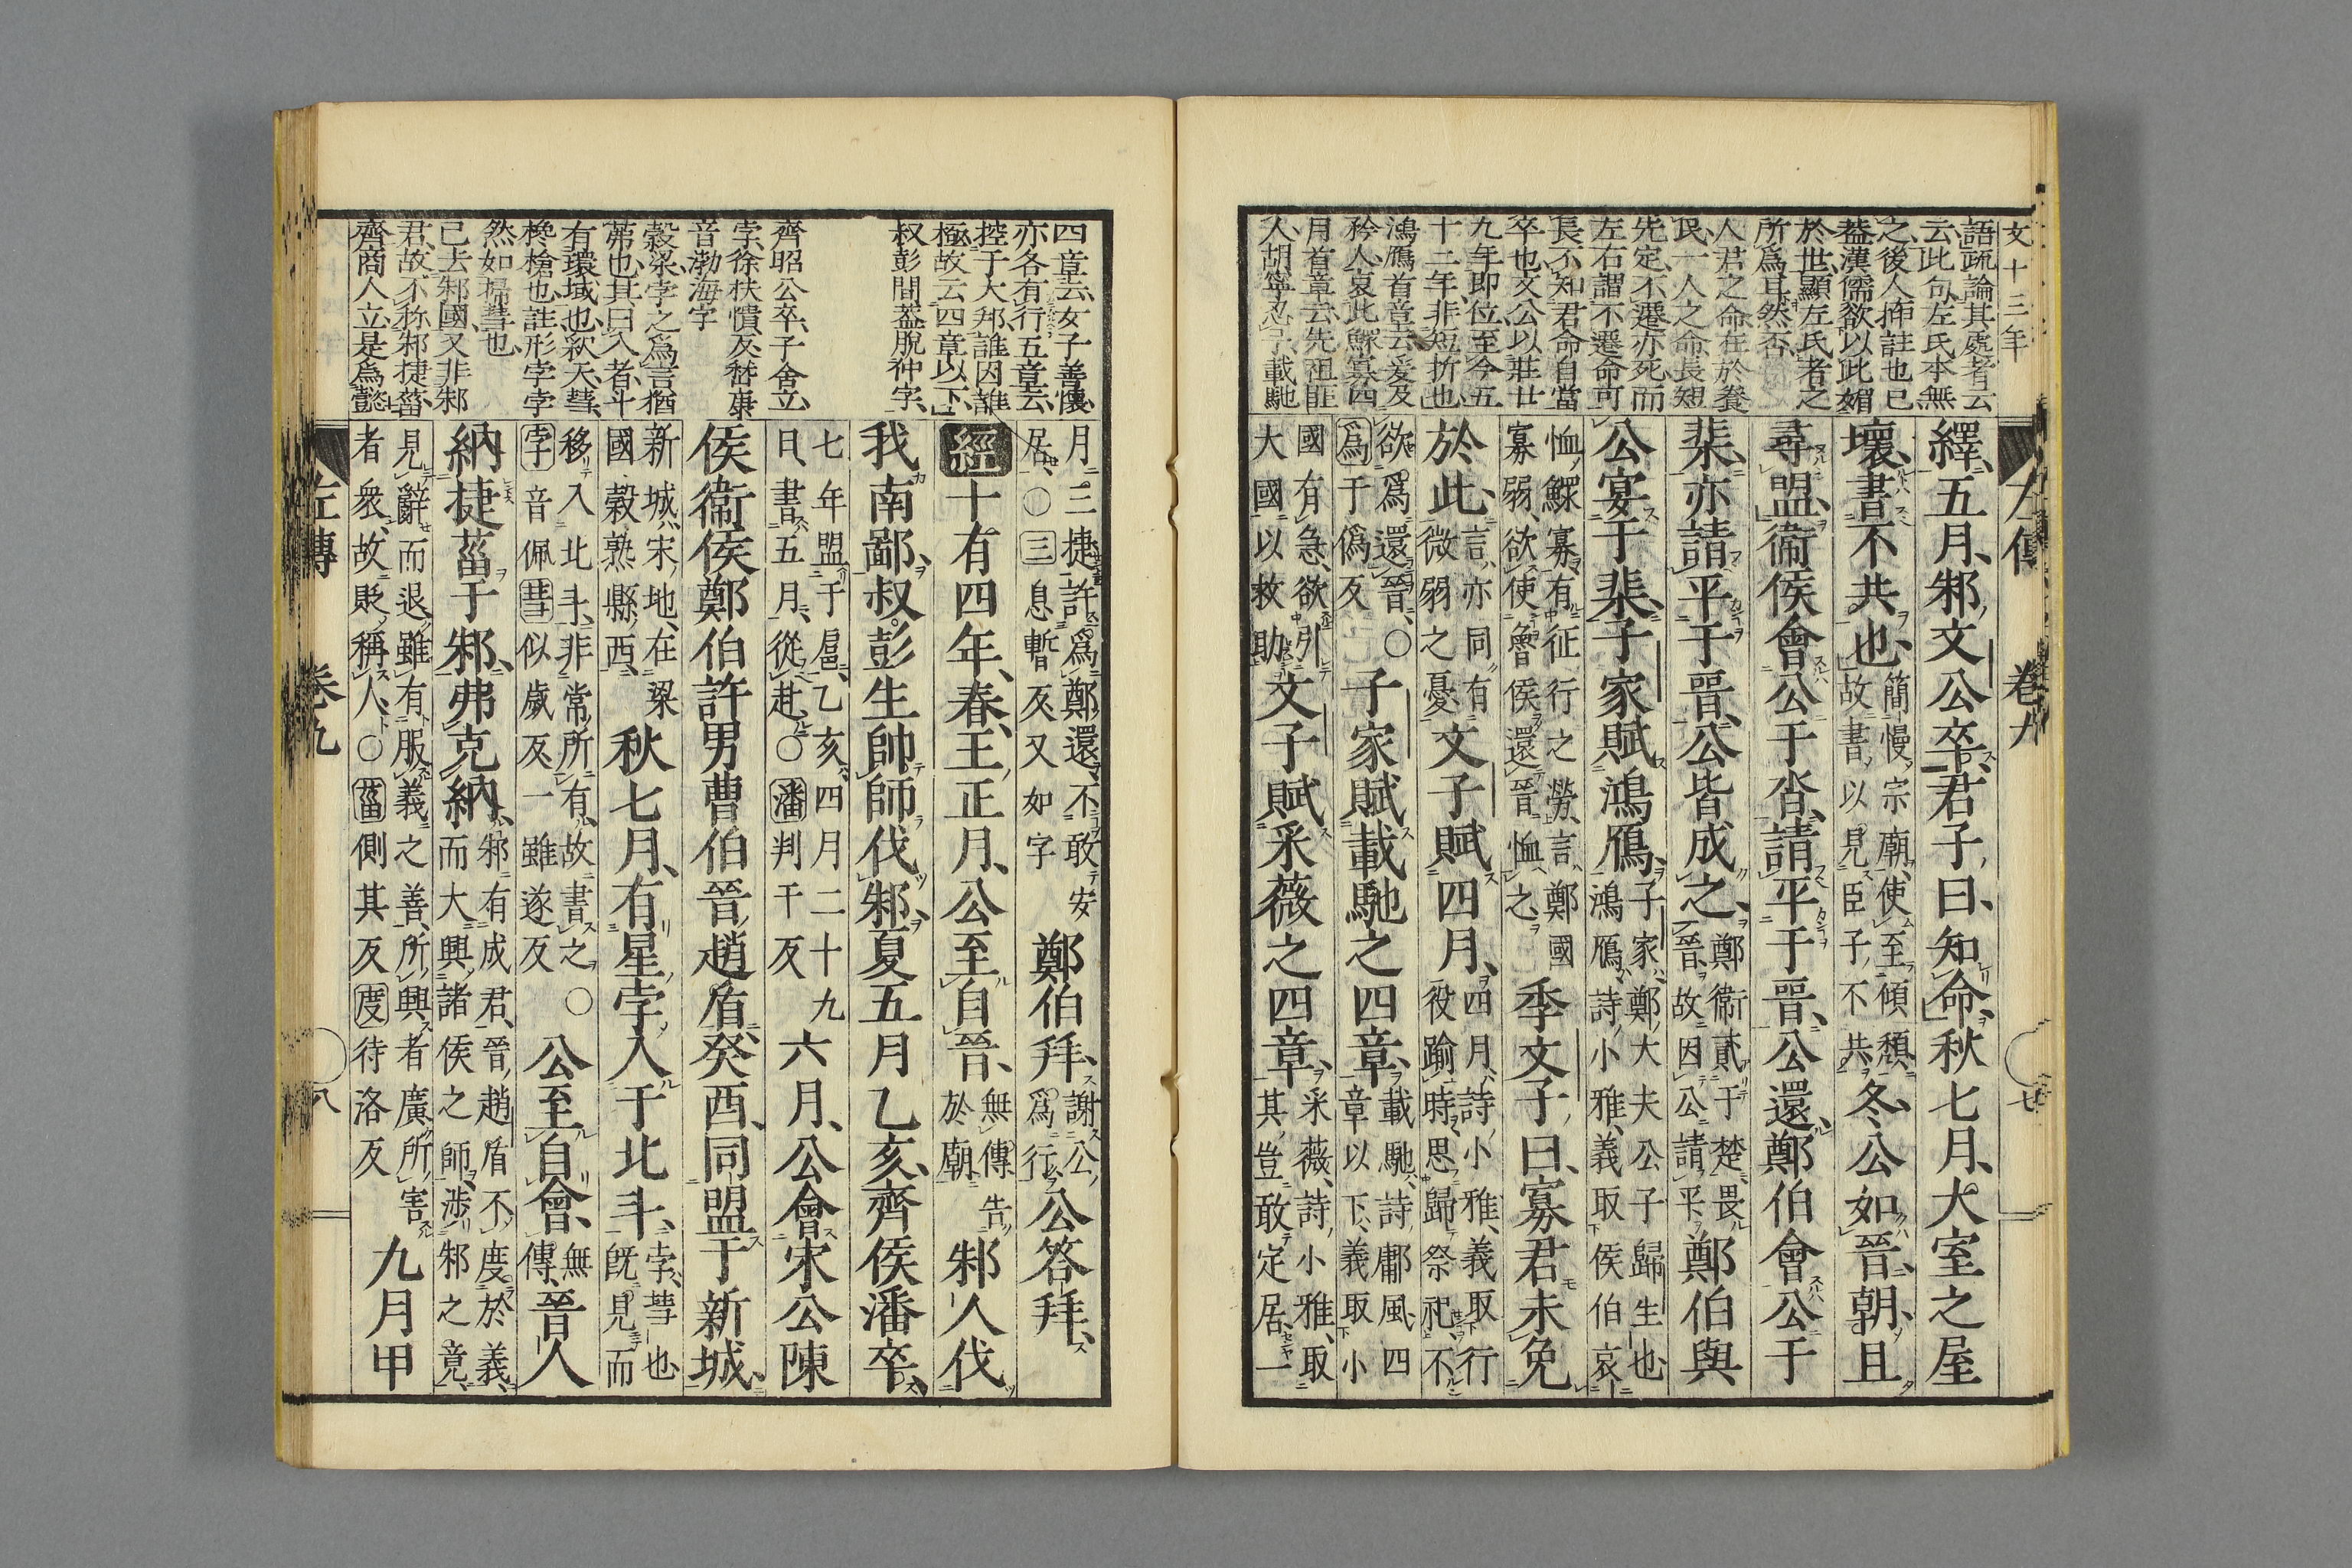 文十三年
左傳 卷九 七
語疏論其處者云
云此句左氏本無
之後人揷註也已
蓋漢儒欲以此媚
於世顯左氏者之
所爲耳然否
人君之命在於養
民一人之命長短
先定不遷亦死而
左右謂不遷命可
長不知君命自當
卒也文公以莊廿
九年即位至今五
十二年非短折也
鴻鴈首章云爰及
矜人哀此鰥寡四
月首章云先祖匪
人胡寧忍予載馳
繹五月邾文公卒君子曰知命秋七月大室之屋
壞書不共也簡慢宗廟使至傾頽故書以見臣子不共冬公如晉朝且
尋盟衞侯會公于沓請平于晉公還鄭伯會公于
棐亦請平于晉公皆成之鄭衞貳于楚畏晉故因公請平鄭伯與
公宴于棐子家賦鴻鴈子家鄭大夫公子歸生也鴻鴈詩小雅義取侯伯哀
恤鰥寡有征行之勞言鄭國寡弱欲使魯侯還晉恤之季文子曰寡君未免
於此言亦同有微弱之憂文子賦四月四月詩小雅義取行役踰時思歸祭祀不
欲爲還晉○爲于僞反子家賦載馳之四章載馳詩鄘風四章以下義取小
國有急欲引大國以救助文子賦采薇之四章采薇詩小雅取其豈敢定居一
四章云女子善懷
亦各有行五章云
控于大邦誰因誰
極故云四章以下
叔彭間蓋脫仲字
齊昭公卒子舍立
孛徐扶憒反嵇康
音渤海字
穀梁孛之爲言猶
茀也其曰入者斗
有環域也釈天彗
欃槍也註形孛孛
然如掃彗也
已去邾國又非邾
君故不称邾捷菑
齊商人立是爲懿
月三捷許爲鄭還不敢安居○三息暫反又如字鄭伯拜謝公爲行公答拜
經十有四年春王正月公至自晉無傳告於廟邾人伐
我南鄙叔彭生帥師伐邾夏五月乙亥齊侯潘卒
七年盟于扈乙亥四月二十九日書五月從赴○潘判干反六月公會宋公陳
侯衞侯鄭伯許男曹伯晉趙盾癸酉同盟于新城
新城宋地在梁國穀熟縣西秋七月有星孛入于北斗孛彗也旣見而
移入北斗非常所有故書之○孛音佩彗似歲反一雖遂反公至自會無傳晉人
納捷菑于邾弗克納邾有成君晉趙盾不度於義而大興諸侯之師涉邾之竟
見辭而退雖有服義之善所興者廣所害者衆故貶稱人○菑側其反度待洛反九月甲
左傳 卷九 八